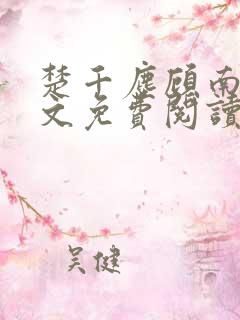 楚千塵顧南
文免費閱讀
吴健